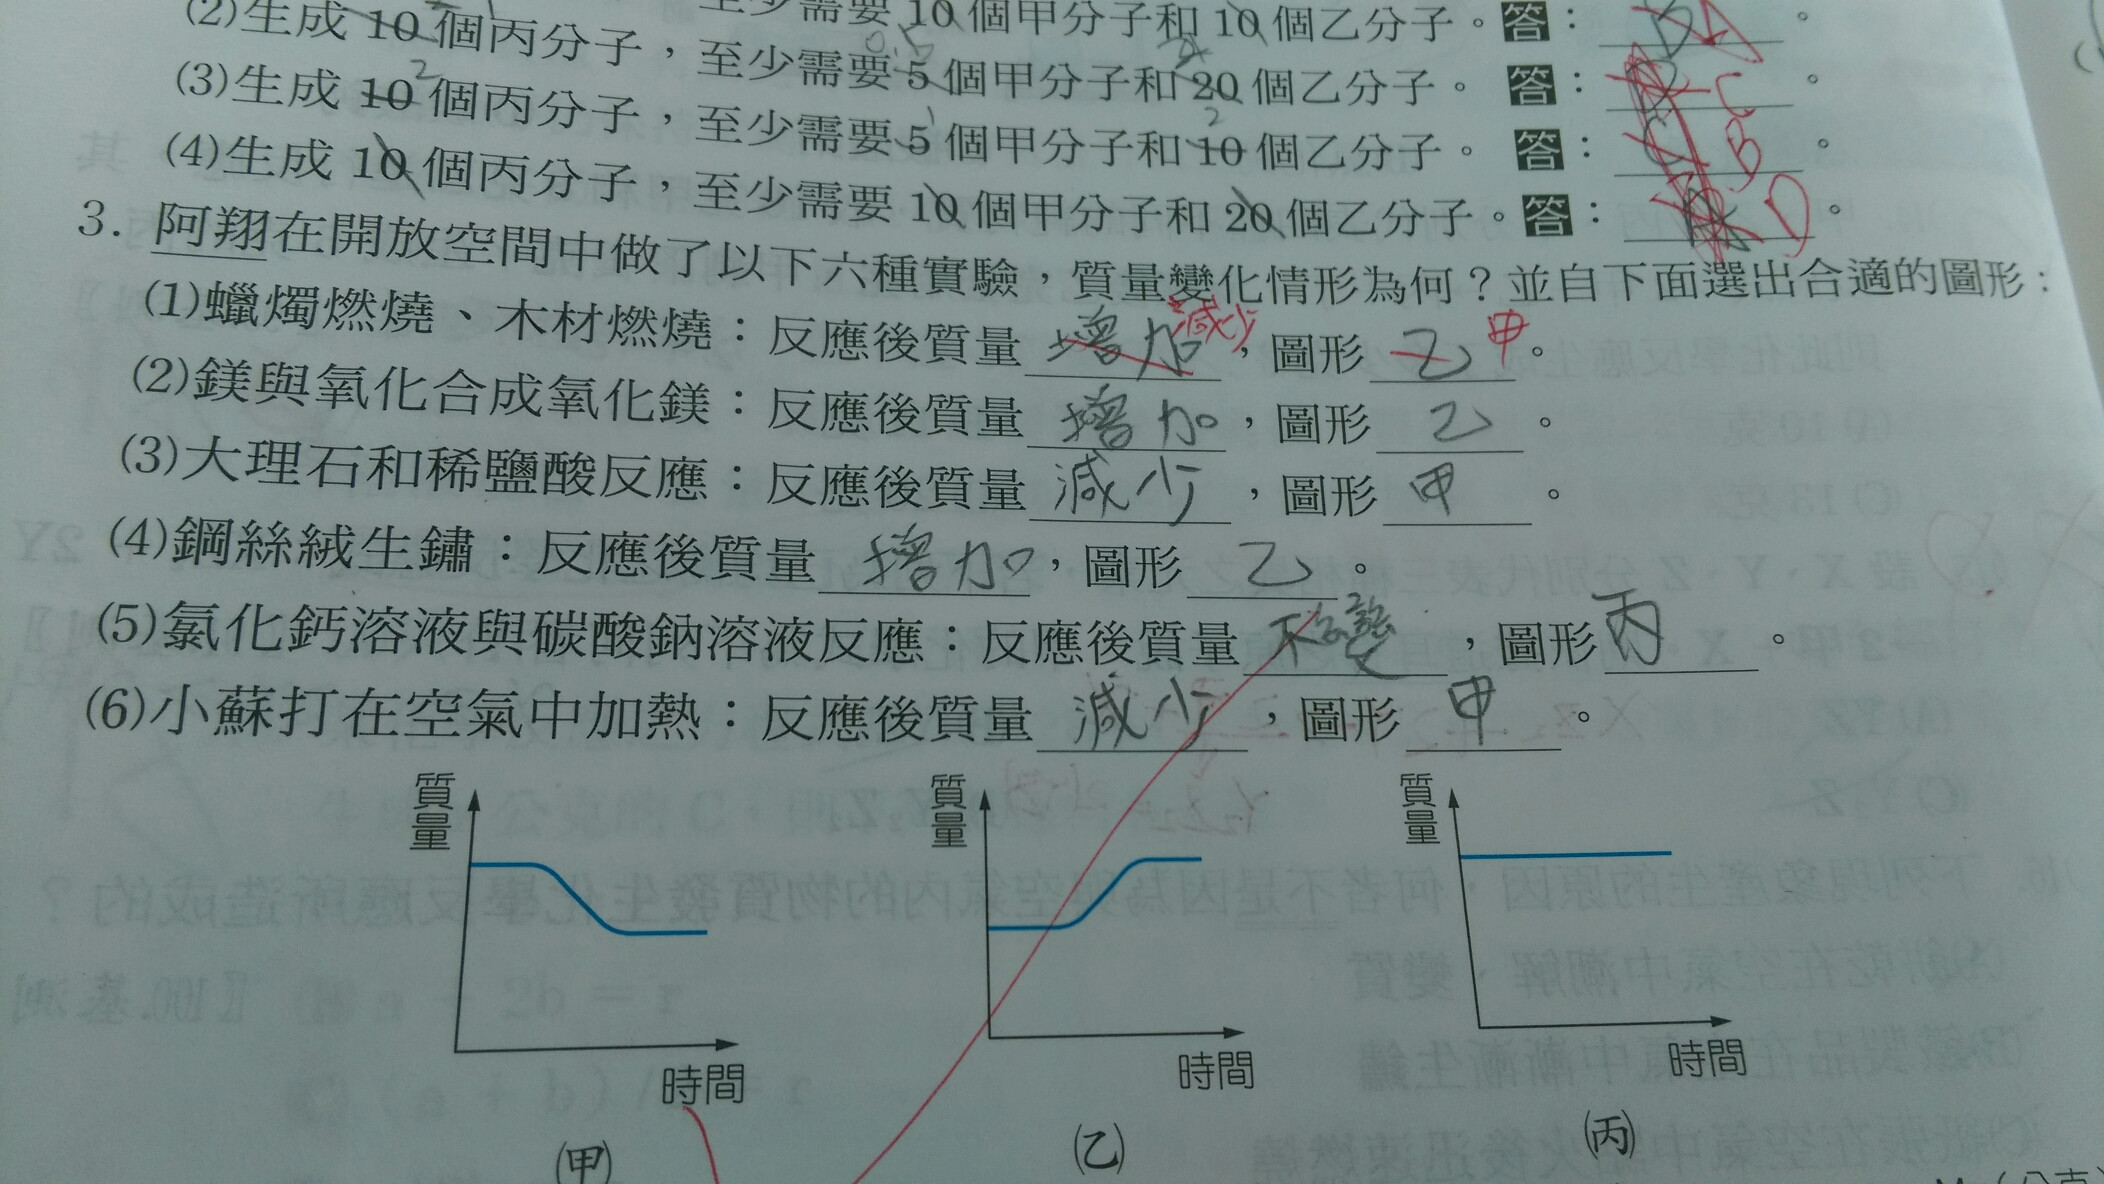 (2)生成 10 個丙分子，至少需要 10 個甲分子和 10 個乙分子。答：A。
(3)生成 10 2 個丙分子，至少需要 5 個甲分子和 20 個乙分子。答：C。
(4)生成 10 個丙分子，至少需要 5 1 個甲分子和 10 2 個乙分子。答：B。
至少需要 10 個甲分子和 20 個乙分子。答：D。
3. 阿翔在開放空間中做了以下六種實驗，質量變化情形為何？並自下面選出合適的圖形：
(1)蠟燭燃燒、木材燃燒：反應後質量增加 減少，圖形乙 甲。
(2)鎂與氧化合成氧化鎂：反應後質量增加，圖形乙。
(3)大理石和稀鹽酸反應：反應後質量減少，圖形甲。
(4)鋼絲絨生鏽：反應後質量增加，圖形乙。
(5)氯化鈣溶液與碳酸鈉溶液反應：反應後質量不變，圖形丙。
(6)小蘇打在空氣中加熱：反應後質量減少，圖形甲。
質量 質量 質量
時間 時間 時間
(甲) (乙) (丙)